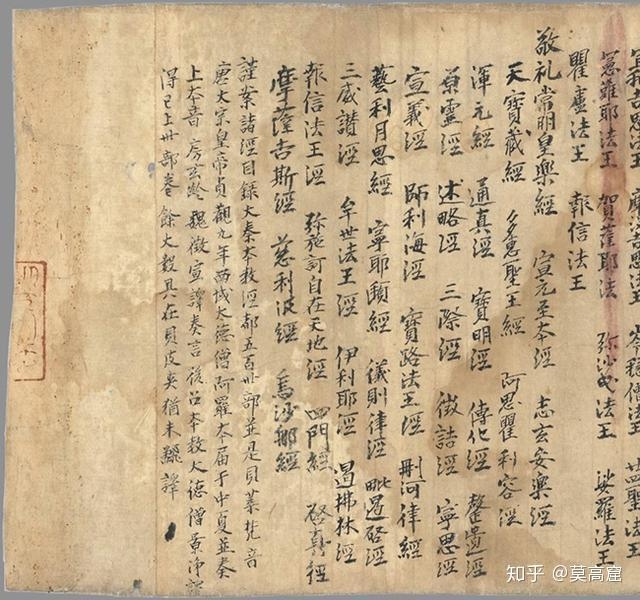 思法王 廿四聖法王
憲難耶法王 賀薩耶法王 弥沙曳法王 娑羅法王
瞿盧法王 報信法王
敬礼常明皇樂經 宣元至本經 志玄安樂經
天寶藏經 多惠聖王經 阿思瞿利容經
渾元經 通真經 寶明經 傳化經 罄遺經
原靈經 述略經 三際經 徵詰經 寧思經
宣義經 師利海經 寶路法王經 刪河律經
藝利月思經 寧耶頤經 儀則律經 毗遏啓經
三威讚經 牟世法王經 伊利耶經 遏拂林經
報信法王經 弥施訶自在天地經 四門經 啓真經
摩薩吉斯經 慈利波經 烏沙那經
謹案諸經目錄大秦本教經都五百卅部並是貝葉梵音
唐太宗皇帝貞觀九年西域大德僧阿羅本屆于中夏並奏
上本音房玄齡魏徵宣譯奏言後召本教大德僧景淨譯
得已上卅部卷餘大數具在貝皮夾猶未翻譯
知乎 @莫高窟